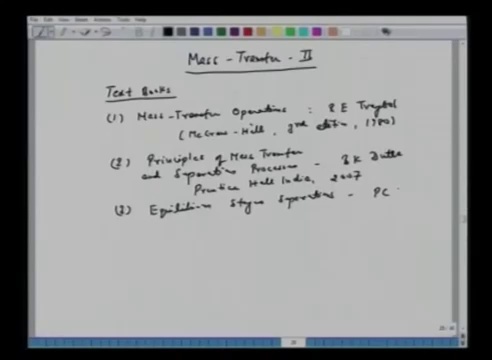 Mass-Transfer-II
Text Books
(1) Mass-Transfer Operations : R E Treybal
(McGraw-Hill, 3rd edition, 1980)
(2) Principles of Mass Transfer
and Separation Processes - B K Dutta
Prentice Hall India, 2007
(3) Equilibrium Stages Separations - PC